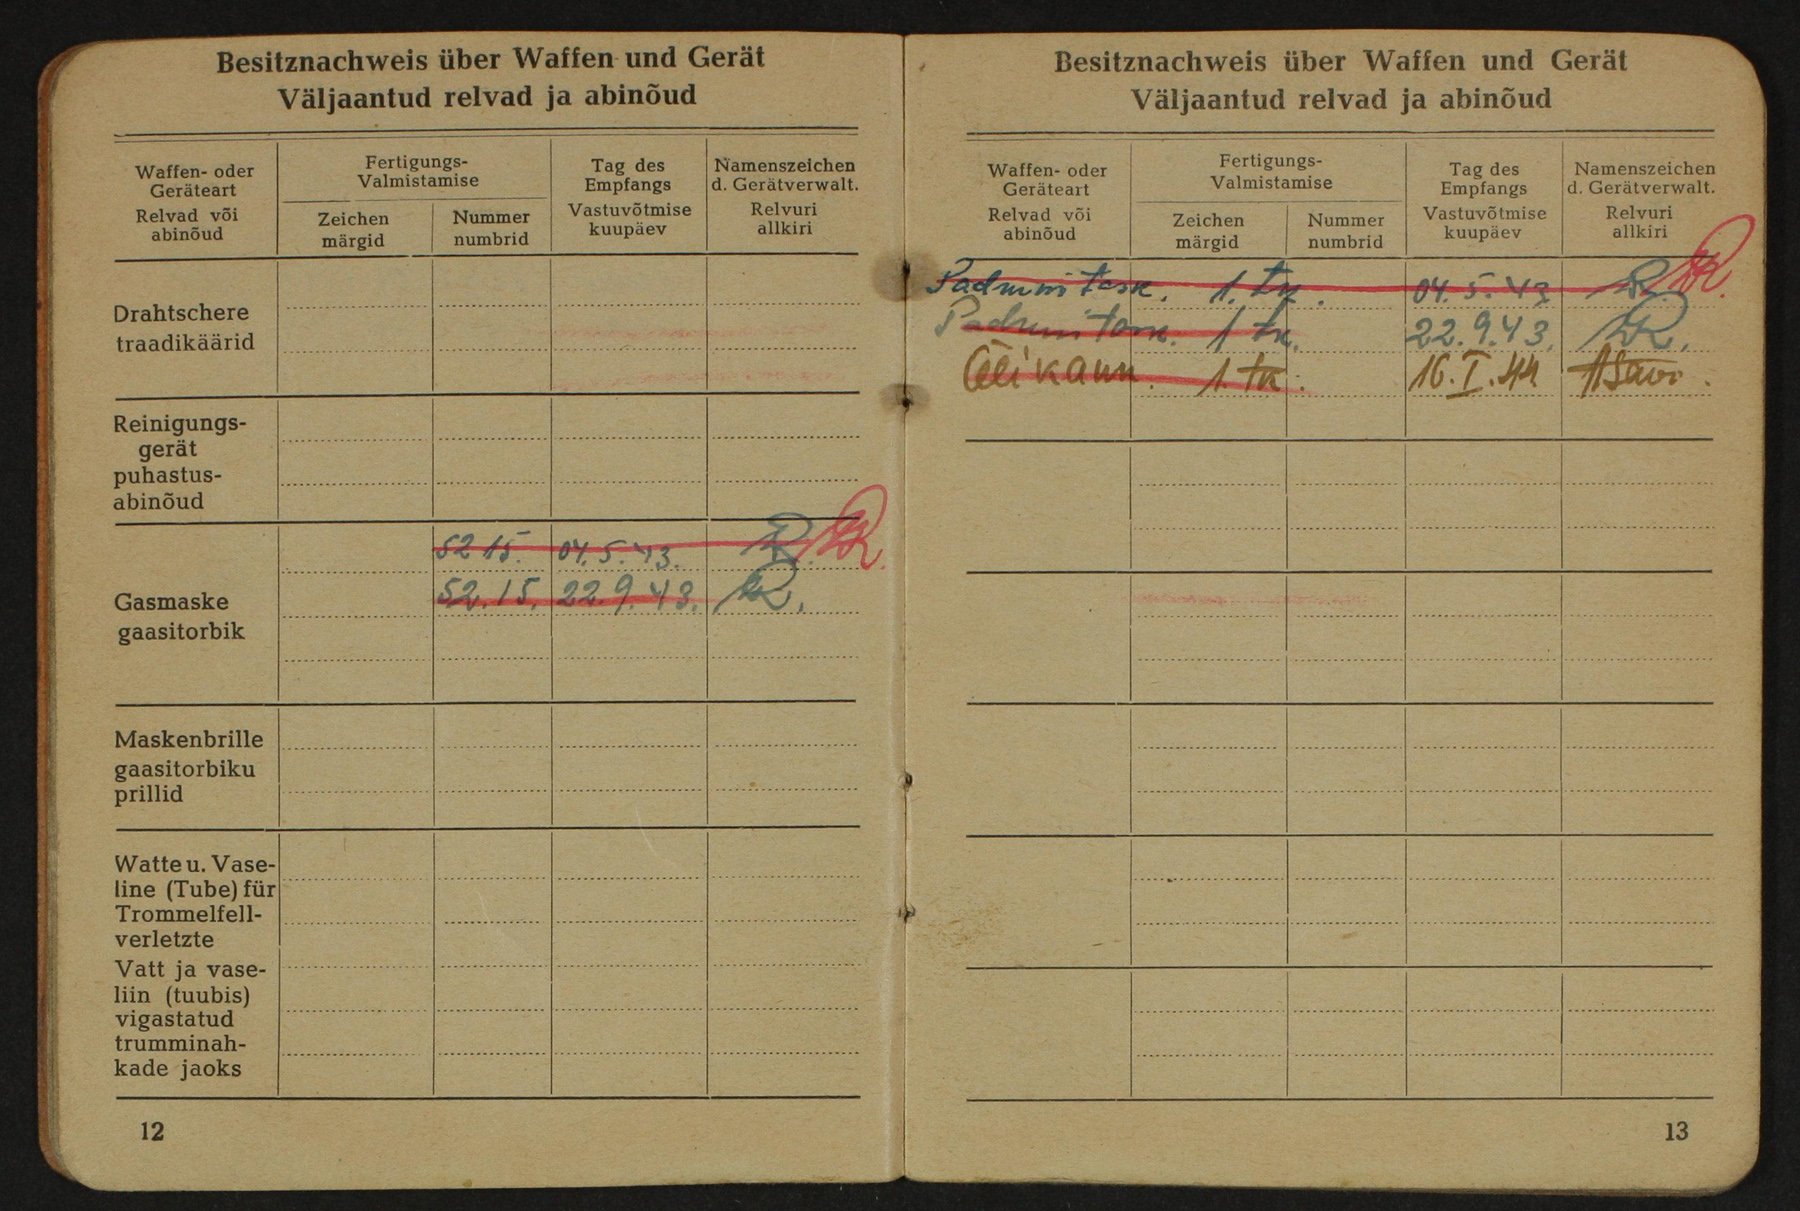 Besitznachweis über Waffen und Gerät
Väljaantud relvad ja abinõud
Waffen- oder
Geräteart
Relvad või
abinõud
Fertigungs-
Valmistamise
Zeichen
märgid
Nummer
numbrid
Tag des
Empfangs
Vastuvõtmise
kuupäev
Namenszeichen
d. Gerätverwalt.
Relvuri
allkiri
Drahtschere
traadikäärid
Reinigungs-
gerät
puhastus-
abinõud
Gasmaske
gaasitorbik
52 15. 04. 5. 43.
52. 15. 22. 9. 43.
Maskenbrille
gaasitorbiku
prillid
Watte u. Vase-
line (Tube) für
Trommelfell-
verletzte
Vatt ja vase-
liin (tuubis)
vigastatud
trumminah-
kade jaoks
12
Besitznachweis über Waffen und Gerät
Väljaantud relvad ja abinõud
Waffen- oder
Geräteart
Relvad või
abinõud
Fertigungs-
Valmistamise
Zeichen
märgid
Nummer
numbrid
Tag des
Empfangs
Vastuvõtmise
kuupäev
Namenszeichen
d. Gerätverwalt.
Relvuri
allkiri
Padrunitask. 1. tk. 04. 5. 43
Padrunitask. 1 tk. 22. 9. 43.
Õlikann. 1. tk. 16. I. 44
13